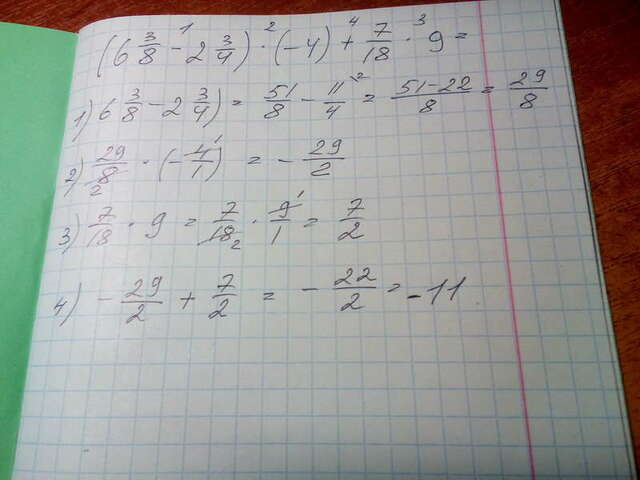 (6 3/8 - 2 3/4) · (-4) + 7/18 · 9 =
1) 6 3/8 - 2 3/4) = 51/8 - 11/4 = 51-22/8 = 29/8
2) 29/8 · (-4/1) = - 29/2
3) 7/18 · 9 = 7/18 · 9/1 = 7/2
4) - 29/2 + 7/2 = - 22/2 = -11